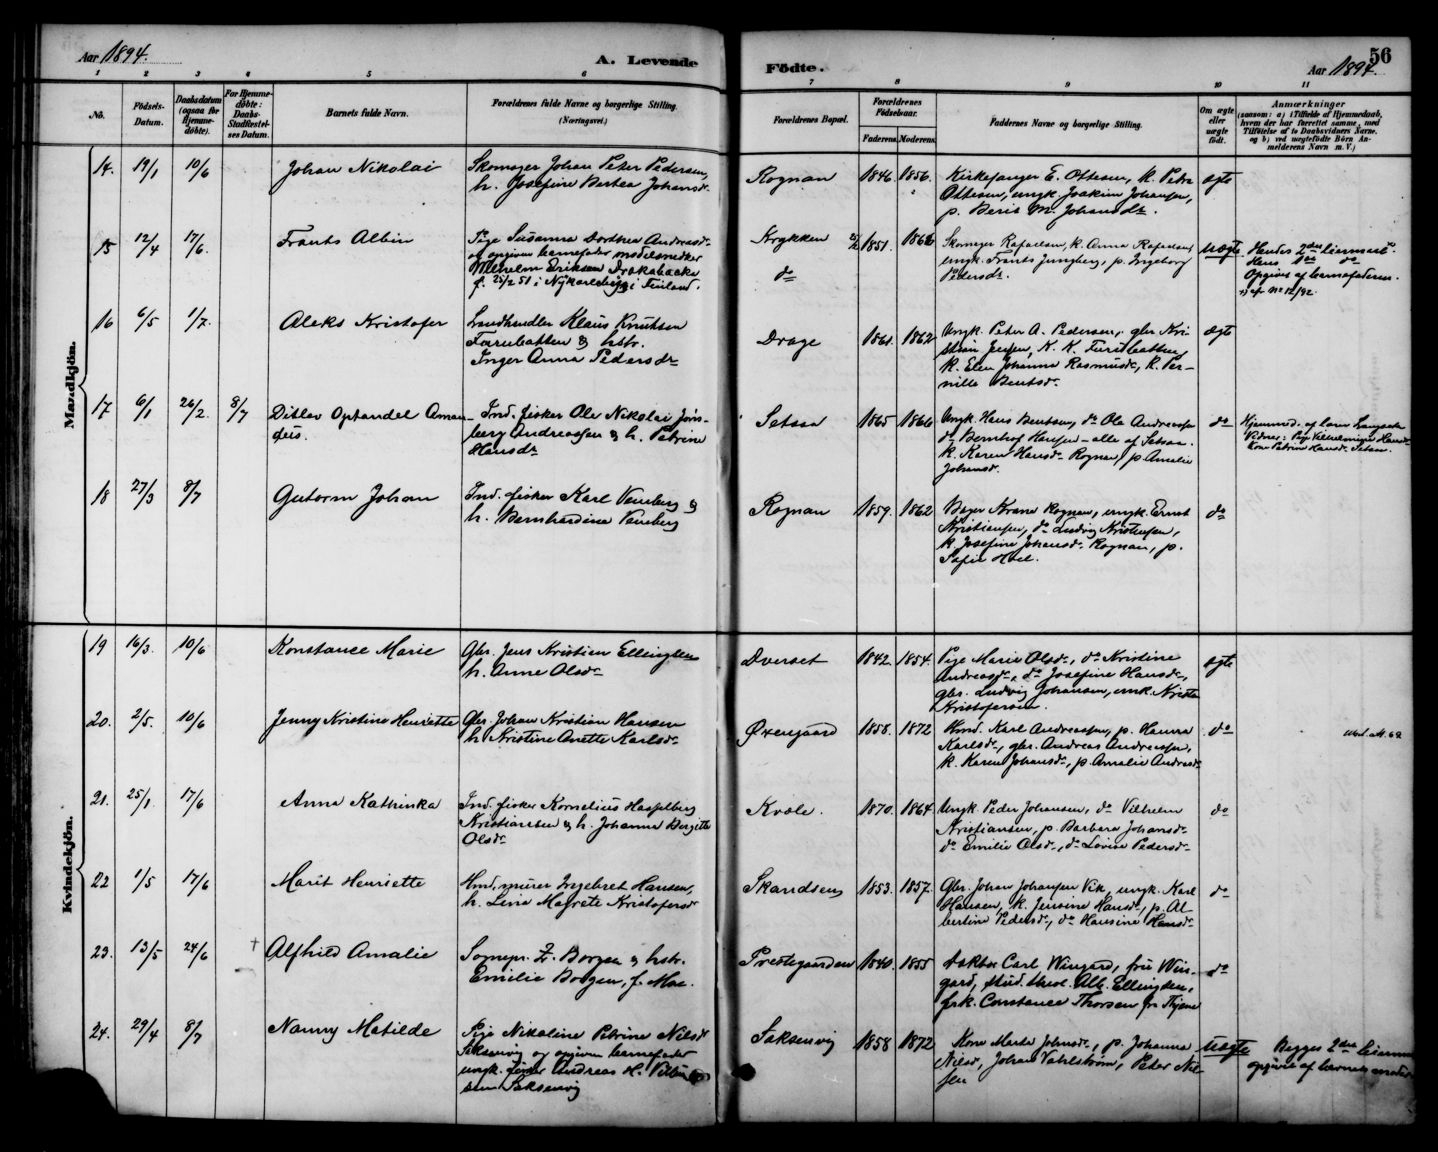 Aar 1894.
A. Levende
Fødte.
56
Aar 1894.
1 2 3 4 5 6 7 8 9 10 11
No.
Fødsels-
Datum.
Daabsdatum
(ogsaa for
Hjemme-
døbte).
For Hjemme-
døbte:
Daabs-
Stadfæstel-
ses Datum.
Barnets fulde Navn.
Forældrenes fulde Navne og borgerlige Stilling.
(Næringsvei.)
Forældrenes Bopæl.
Forældrenes
Fødselsaar.
Faderens. Moderens.
Faddernes Navne og borgerlige Stilling.
Om ægte
eller
uægte
født.
Anmærkninger
(saasom: a) i Tilfælde af Hjemmedaab,
hvem der har forrettet samme, med
Tilføielse af to Daabsvidners Navne,
og b) ved uægtefødte Børn An-
melderens Navn m. V.)
Mandkjøn.
14. 19/1 10/6 Johan Nikolai
Skomager Johan Peter Pedersen,
h. Josefine Bertea Johansd.
Rognan 1846. 1856.
Kirkesanger E. Ottesen, k. Petra
Ottesen, ungk. Joakim Johansen,
p. Berit M. Johansdr.
ægte
15 12/4 17/6. Frants Albin
Pige Susanna Dorthea Andreasdr
og opgiven barnefader modelsnedker
Wilhelm Eriksen Drakabacka
f. 25/2 51 i Nykarleby i Finland.
Krykken
do
1851.
Skomager Rafaelsen, k. Anna Rafaelsen
ungk. Frants Jungberg, p. Ingeborg
Pedersdr.
uægte
Hendes 2det leiermaal
Hans 1ste do
Opgivet af barnefaderen.
16 6/5 1/7. Aleks Kristofer
Landhandler Klaus Knutsen
Farubatten & hstr.
Inger Anna Pedersdr
Drage 1861. 1862
Ungk. Peter A. Pedersen, gbr. Kri-
stian Jensen, K. K. Furubatten,
k. Elen Johanna Rasmusdr, k. Per-
nille Bentsdr.
ægte
17 6/1 26/2. 8/7 Ditlev Optandel Aman-
deus.
Ind. fisker Ole Nikolai Jøns-
berg Andreassen & h. Petrine
Hansdr
Setsaa 1865 1866
Ungk. Hans Bentsen, do Ole Andreassen
do Bernhof Hansen - alle af Setsaa.
k. Karen Hansdr Rognan, p. Amalie
Johansd.
do
Hjemmed. af Lars Langsæth
Vidner: Pige Vilhelmine Hansdr
Kone Petrine Hansdr Setsaa.
18 27/3 8/7 Gutorm Johan
Ind. fisker Karl Venberg &
h. Bernhardine Venberg
Rognan 1859. 1862
Bager Krane Rognan, ungk. Ernst
Kristiansen, do Ludvig Kristensen,
k. Josefine Johansdr Rognan, p.
Sofie Hoel.
do
Kvindekjøn.
19 16/3. 10/6 Konstance Marie
Gbr. Jens Kristian Ellingsen
h. Anne Olsdr
Dverset 1842. 1854.
Pige Marie Olsdr, do Kristine
Andreasdr, do Josefine Hansdr,
gbr. Ludvig Johansen, enk. Kristen
Kristofersen.
ægte
20. 2/5. 10/6 Jenny Kristine Henriette
Gbr. Johan Kristian Hansen
h. Kristine Anette Karlsdr
Øxengaard 1858. 1872
Hmd. Karl Andreassen, p. Hanna
Karlsdr, gbr. Andreas Andreassen,
k. Karen Johansdr, p. Amalie Andreasdr
do
21. 25/1. 17/6 Anna Kathinka
Ind. fisker Kornelius Hasselberg
Kristiansen & h. Johanna Bergitte
Olsdr
Kvæle. 1870. 1864.
Ungk. Peder Johansen, do Vilhelm
Kristiansen, p. Barbara Johansdr
do Emilie Olsdr, do Lovise Pedersdr
do
22 1/5 17/6 Marit Henriette
Hmd. murer Ingebret Hansen,
h. Lina Magrete Kristofersdr
Skandsen 1853. 1857.
Gbr. Johan Johansen Vik, ungk. Karl
Hansen, k. Jensine Hansdr, p. Al-
bertine Pedersdr, do Hansine Hansdr
do
23. 13/5 24/6 † Alfhild Amalie
Sognepr. F. Borgen & hstr.
Emilie Borgen, f. Moe.
Prestegaarden 1840. 1855
Doktor Carl Wingard, fru Win-
gard, stud. theol. Alb. Ellingsen,
frk. Constance Thorsen fr. Tjome
do
24. 29/4 8/7 Nanny Matilde
Pige Nikoline Petrine Nilsdr
Saksenvig og opgiven barnefader
ungk. fisker Andreas H. Petter-
sen Saksenvig
Saksenvig 1858 1872
Kone Marta Johnsdr, p. Johanna
Nilsd, Johan Vahlstrøm, Peter Nil-
sen
uægte
Begges 2det leiermaal
opgivet af barnets moder